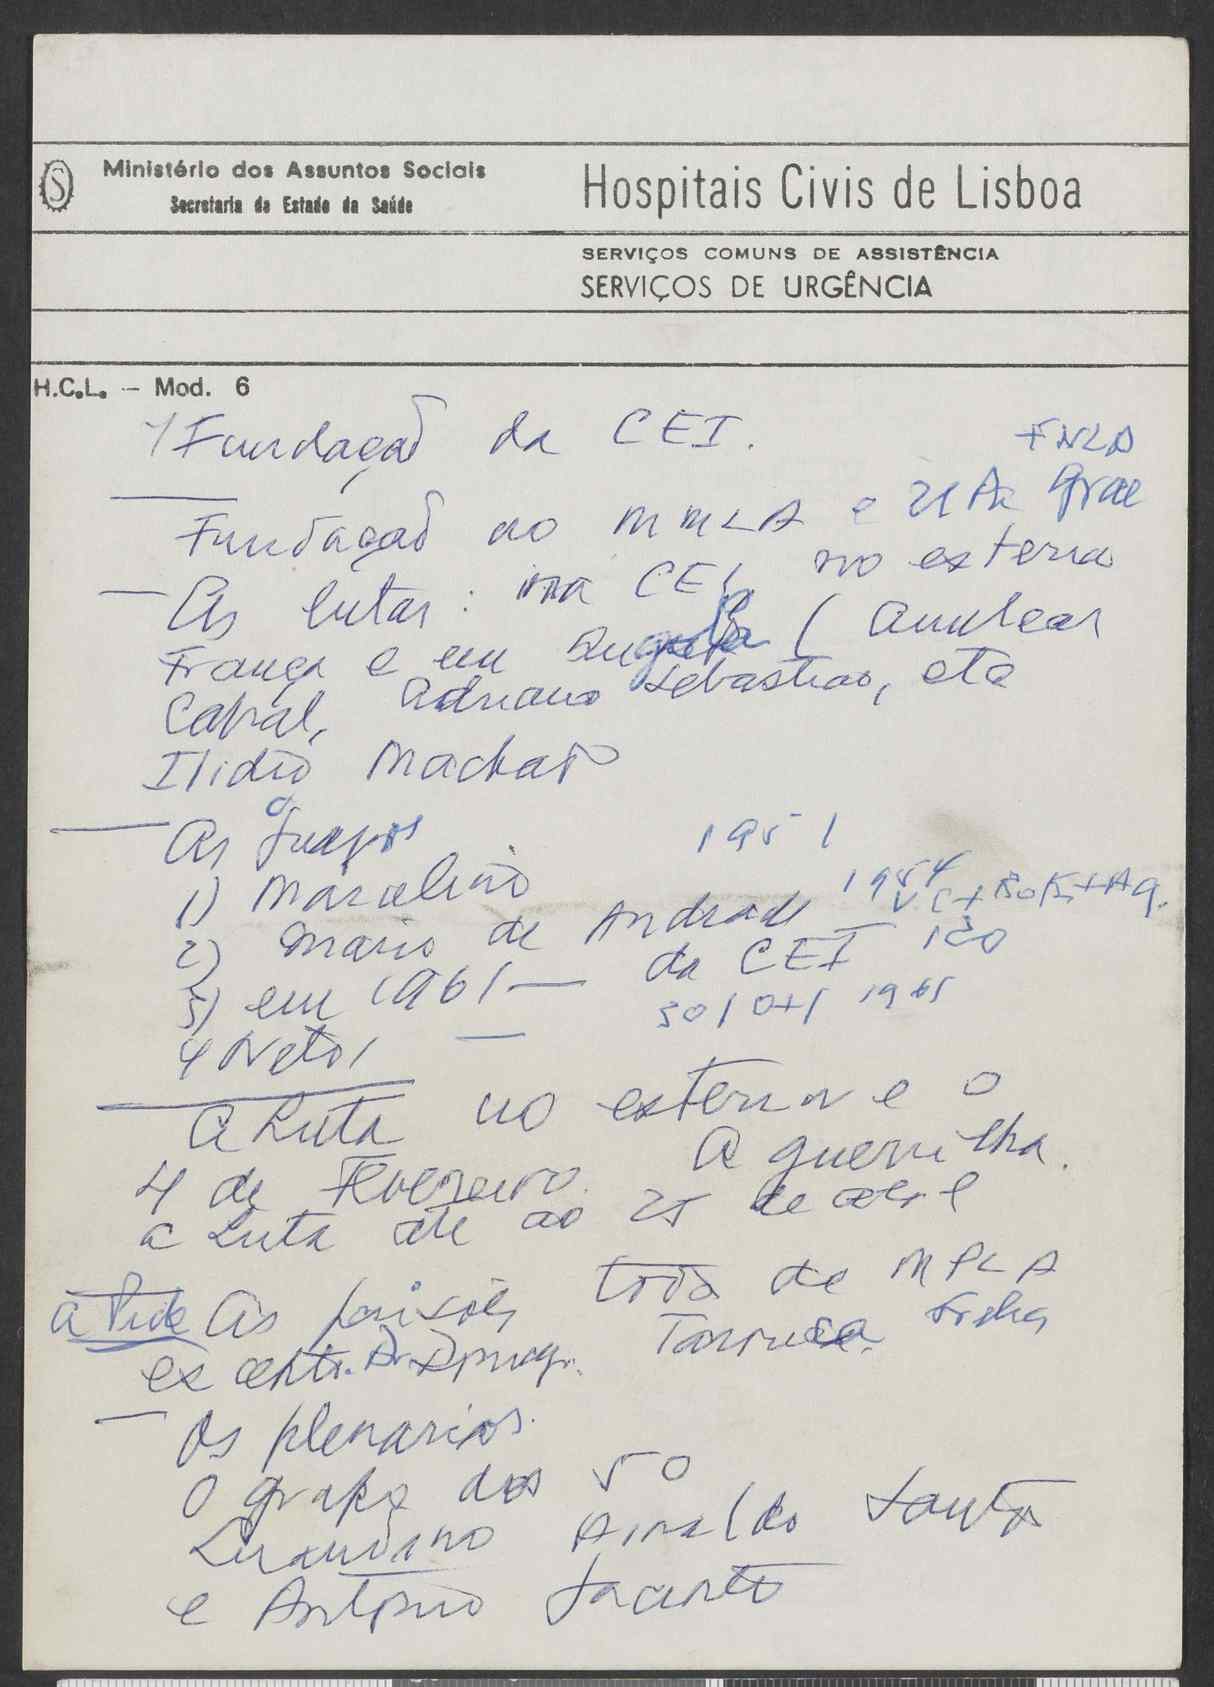 Ministério dos Assuntos Sociais
Secretaria de Estado da Saúde
Hospitais Civis de Lisboa
SERVIÇOS COMUNS DE ASSISTÊNCIA
SERVIÇOS DE URGÊNCIA
H.C.L. — Mod. 6
1 Fundação da CEI.
FNLA
Fundação do MMLA e
— As lutas: na CEI no externo
França e em Angola (Amilcar
Cabral, Adriano Sebastiao, etc
Ilidio Machado
— Os grupos 1951
1) Marcelino 1954
2) Mario de Andrade
3) em 1961 — da CEI
4 Neto 1965
A Luta no exterior e o
4 de Fevereiro. A guerrilha.
a Luta até ao 25 de abril
a Pide As prisões toda de MPLA
— Os plenarios.
O grupo dos 50
Luandino Arnaldo Santos
e António Jacinto